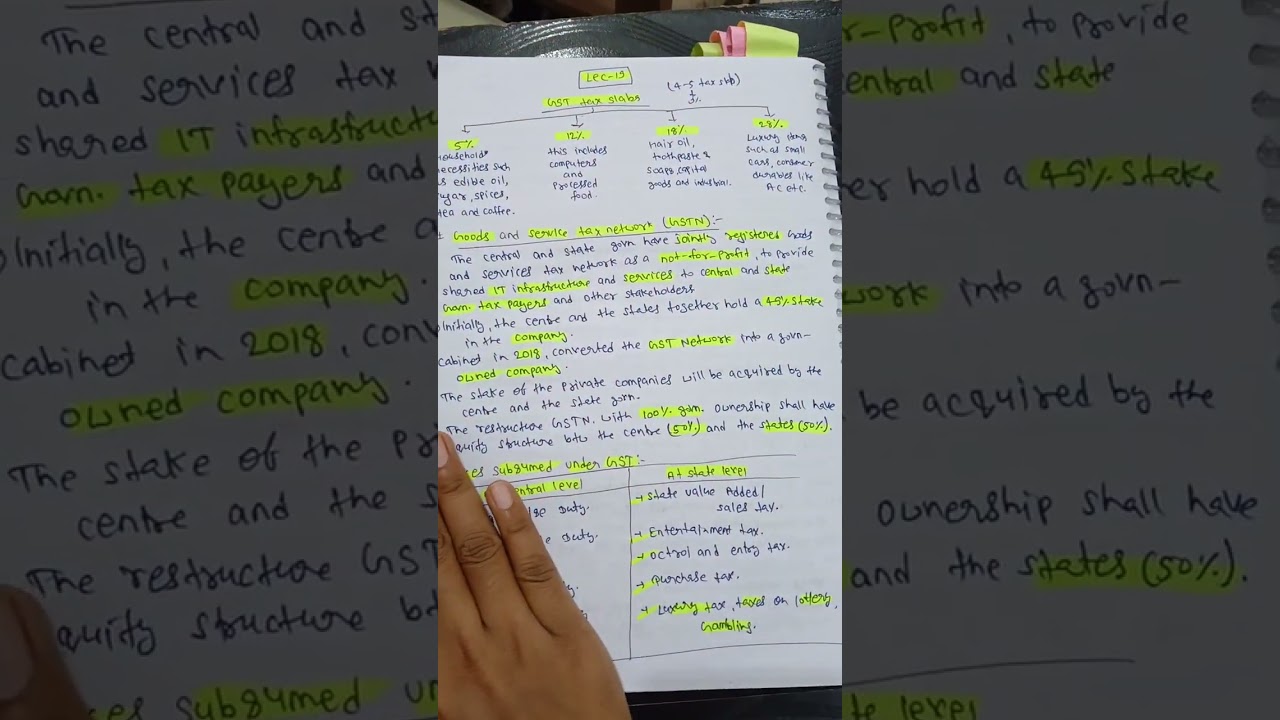 Lec-19
(4-5 tax slab)
3%
GST tax slabs
5% 12% 18% 28%
Household necessities such as edible oil, sugar, spices, tea and coffee.
this includes computers and processed food.
Hair oil, toothpaste & soaps, capital goods and industrial.
Luxury items such as small cars, consumer durables like AC etc.
Goods and service tax network (GSTN):-
The central and state govn have jointly registered Goods
and services tax network as a not-for-profit, to provide
shared IT infrastructure and services to central and state
Govn. tax payers and other stakeholders
Initially, the centre and the states together hold a 49% stake
in the company.
Cabinet in 2018, converted the GST Network into a govn-
owned company.
The stake of the private companies will be acquired by the
centre and the state govn.
The restructure GSTN, with 100% govn. ownership shall have
equity structure btw the centre (50%) and the states (50%).
subsumed under GST:-
central level
At state level
duty.
duty.
→ State value Added/
sales tax.
→ Entertainment tax.
→ Octroi and entry tax.
→ purchase tax.
→ Luxury tax, taxes on lottery,
Gambling.